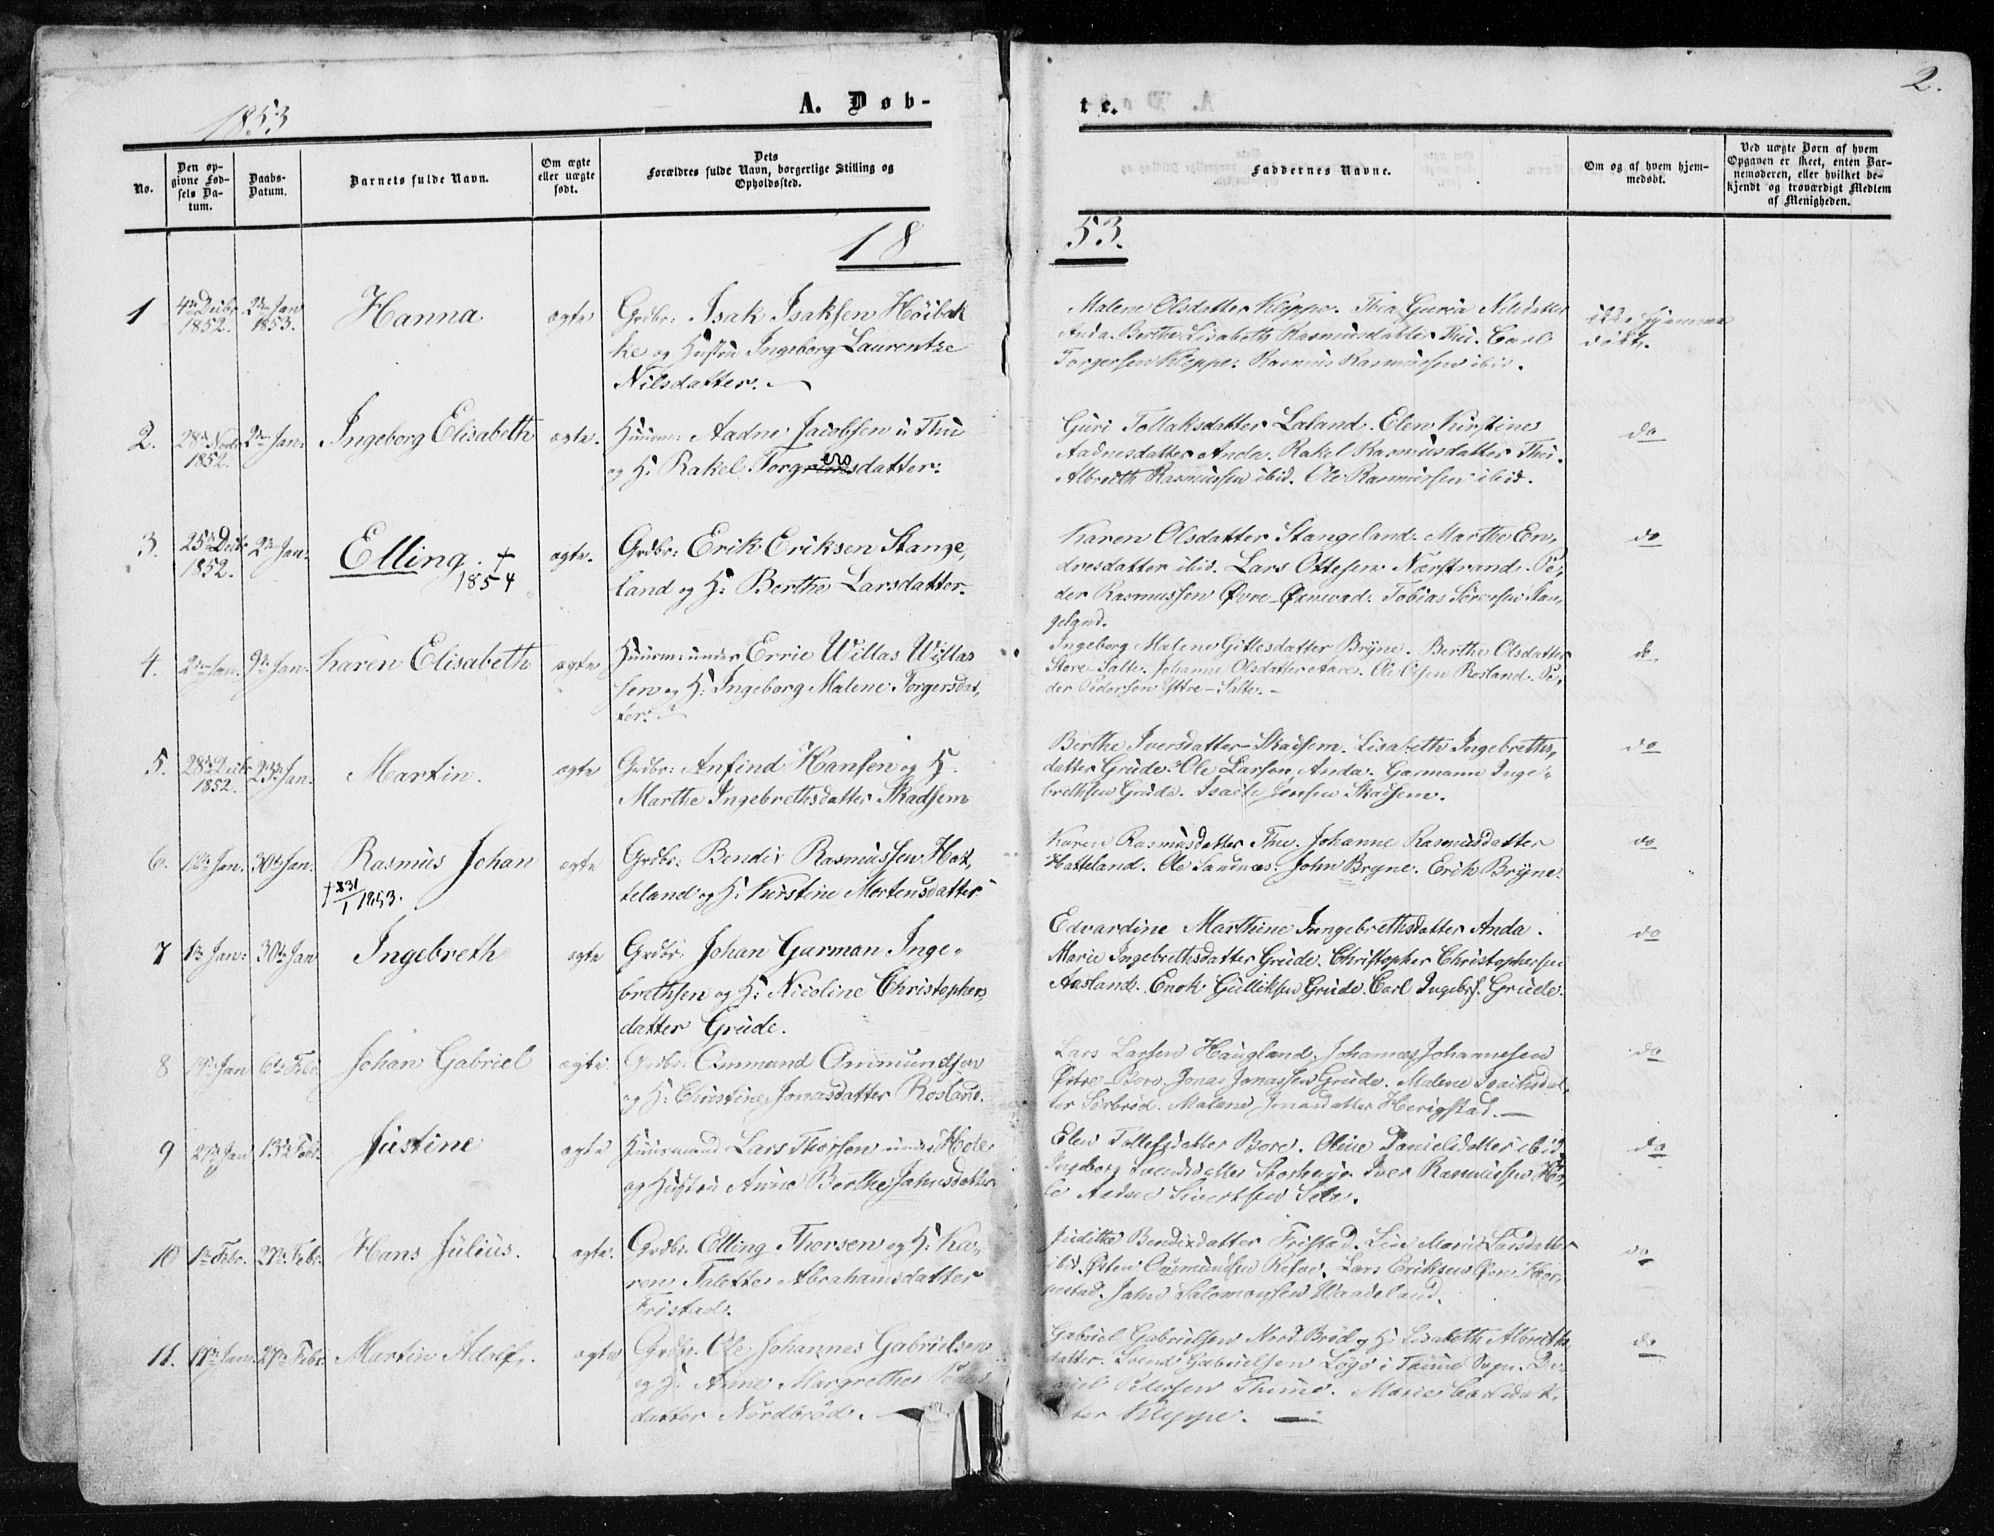 2.
1853
A. Døb-
te.
No.
Den op-
givne Fød-
sels Da-
tum.
Daabs-
Datum.
Barnets fulde Navn.
Om ægte
eller uægte
født.
Dets
Forældres fulde Navn, borgerlige Stilling og
Opholdssted.
Faddernes Navne.
Om og af hvem hjem-
medøbt.
Ved uægte Born af hvem
Opgaven er skeet, enten Bar-
nemoderen, eller hvilket be-
kjendt og troværdigt Medlem
af Menigheden.
18
53.
1
4de Decbr
1852.
2den Jan
1853.
Hanna
ægte
Grdbr: Isak Isaksen Höibak
ke og Hustru Ingeborg Laurentze
Nilsdatter.
Malene Olsdatter Kleppe. Thea Guria Nilsdatter
Anda. Berthe Lisabeth Rasmusdatter Thu. Carl
Torgersen Kleppe. Rasmus Rasmussen ibid.
ikke hjemme
døbt.
2.
28de Novbr
1852.
2den Jan:
Ingeborg Elisabeth
ægte.
Huusm: Aadne Jacobsen u. Thu
og H. Rakel Torgersdatter:
Guri Tollaksdatter Laland. Elen Kirstine
Aadnesdatter Anda. Rakel Rasmusdatter Thu.
Albreth Rasmussen ibid. Ole Rasmussen ibid.
do
3.
25de Decbr
1852.
2den Jan:
Elling. +
1854
ægte.
Grdbr: Erik Eriksen Stange,
land og H: Berthe Larsdatter.
Karen Olsdatter Stangeland. Marthe En,
dresdatter ibid. Lars Ottesen Nærstrand. Pe,
der Rasmussen Øvre-Øxnevad. Tobias Sörensen Stan,
geland.
do
4.
2den Jan.
9de Jan:
Karen Elisabeth
ægte
Huusm: under Errie Willas Willas
sen og H: Ingeborg Malene Torgersdat,
ter.
Ingeborg Malene Gitlesdatter Bryne. Berthe Olsdatter
Store-Salte. Johanne Olsdatter Aare. Ole Olsen Rosland. Pe,
der Pedersen Yttre-Salte.
do.
5.
28de Decbr
1852.
23de Jan:
Martin.
ægte
Grdbr: Anfind Hansen og H.
Marthe Ingebrethsdatter Skadsem
Berthe Iversdatter Skadsem. Lisabeth Ingebreths,
datter Grude. Ole Larsen Anda. Garmann Inge,
brethsen Grude. Isach Jonsen Skadsem.
do
6.
30te Jan:
Rasmus Johan
+ 31/1 1853.
ægte
Grdbr. Bendix Rasmussen Hat,
teland og H: Kirstine Mortensdatter
Karen Rasmusdatter Thu. Johanne Rasmusdatter
Hatteland. Ole Sandnes. John Bryne. Erik Bryne.
do
7
1te Jan:
30te Jan
Ingebreth
ægte
Grdbr: Johan Garman Inge,
brethsen og H: Nicoline Christophers,
datter Grude.
Edvardine Marthine Ingebrethsdatter Anda.
Marie Ingebrethsdatter Grude. Christopher Christophersen
Aasland. Enok Gulliksen Grude. Carl Ingebr. Grude.
do
8
19de Jan
6te Febr
Johan Gabriel
ægte
Grdbr. Ommund Ommundsen
og H: Christine Jonasdatter Rosland.
Lars Larsen Haugland. Johannes Johannesen
Østre-Bore. Jonas Jonassen Grude. Malene Isachsdat,
ter Sörbröd. Malene Jonasdatter Herigstad.
do
9
27de Jan
13de Febr.
Justine
ægte
Huusmand Lars Thorsen under Hole
og Hustru Anne Berthe Jahnsdatter
Elen Tollefsdatter Bore. Oline Danielsdatter ibid.
Ingeborg Svendsdatter Iver Rasmussen Ho,
le Aadne Sivertsen Sele.
do
10
1te Febr.
27de Febr.
Hans Julius.
ægte.
Grdbr. Elling Thorsen og H: Ka,
ren Talette Abrahamsdatter
Fristad.
Judithe Bendixdatter Fristad. Line Marie Larsdatter
ibid. Østen Omundsen Refve. Lars Eriksen Øvre Hær,
pestad. Jahn Salomonsen Waadeland.
do
11.
27de Febr.
Martin Adolf.
ægte
Grdbr. Ole Johannes Gabrielsen
og H: Anne Margrethe Peders
datter Nordbröd.
Gabriel Gabrielsen Nord Bröd og H: Lisabeth Albreths,
datter. Svend Gabrielsen Løge i Time Sogn. Da,
niel Pedersen Thime. Marie Carlsdat,
ter Kleppe.
do